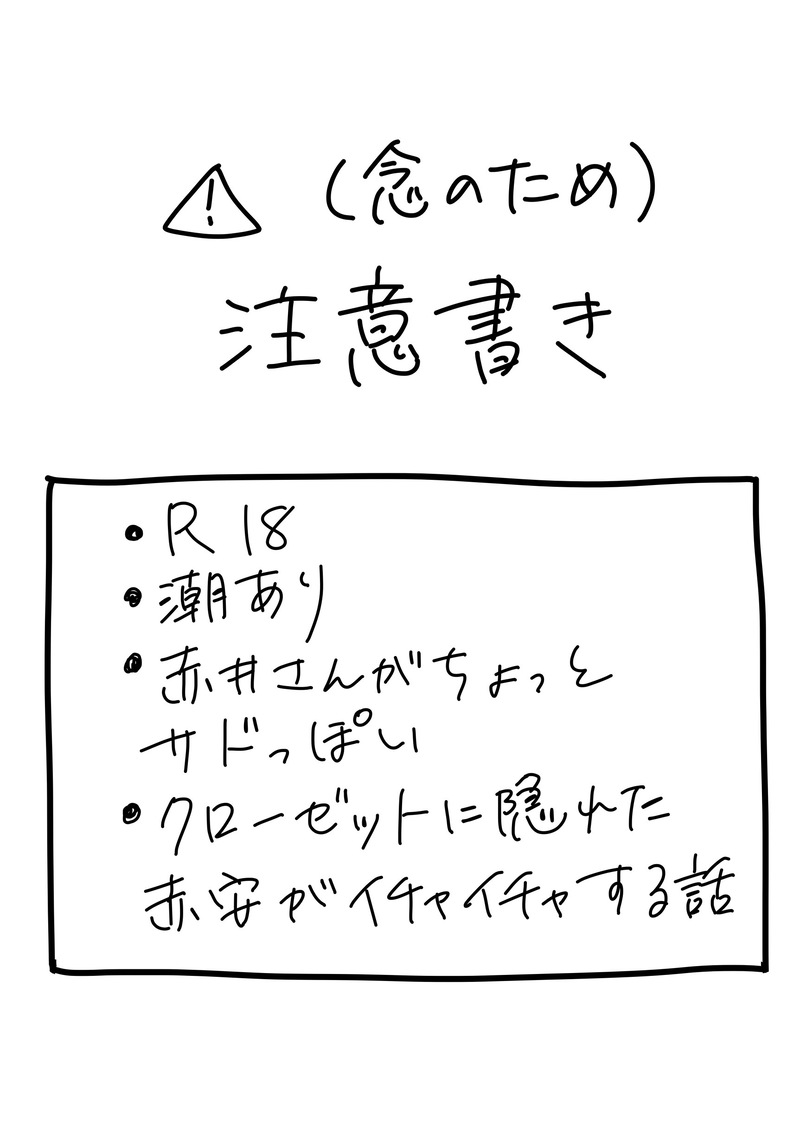 ! (念のため)
注意書き
• R18
• 潮あり
• 赤井さんがちょっと
サドっぽい
• クローゼットに隠れた
赤安がイチャイチャする話